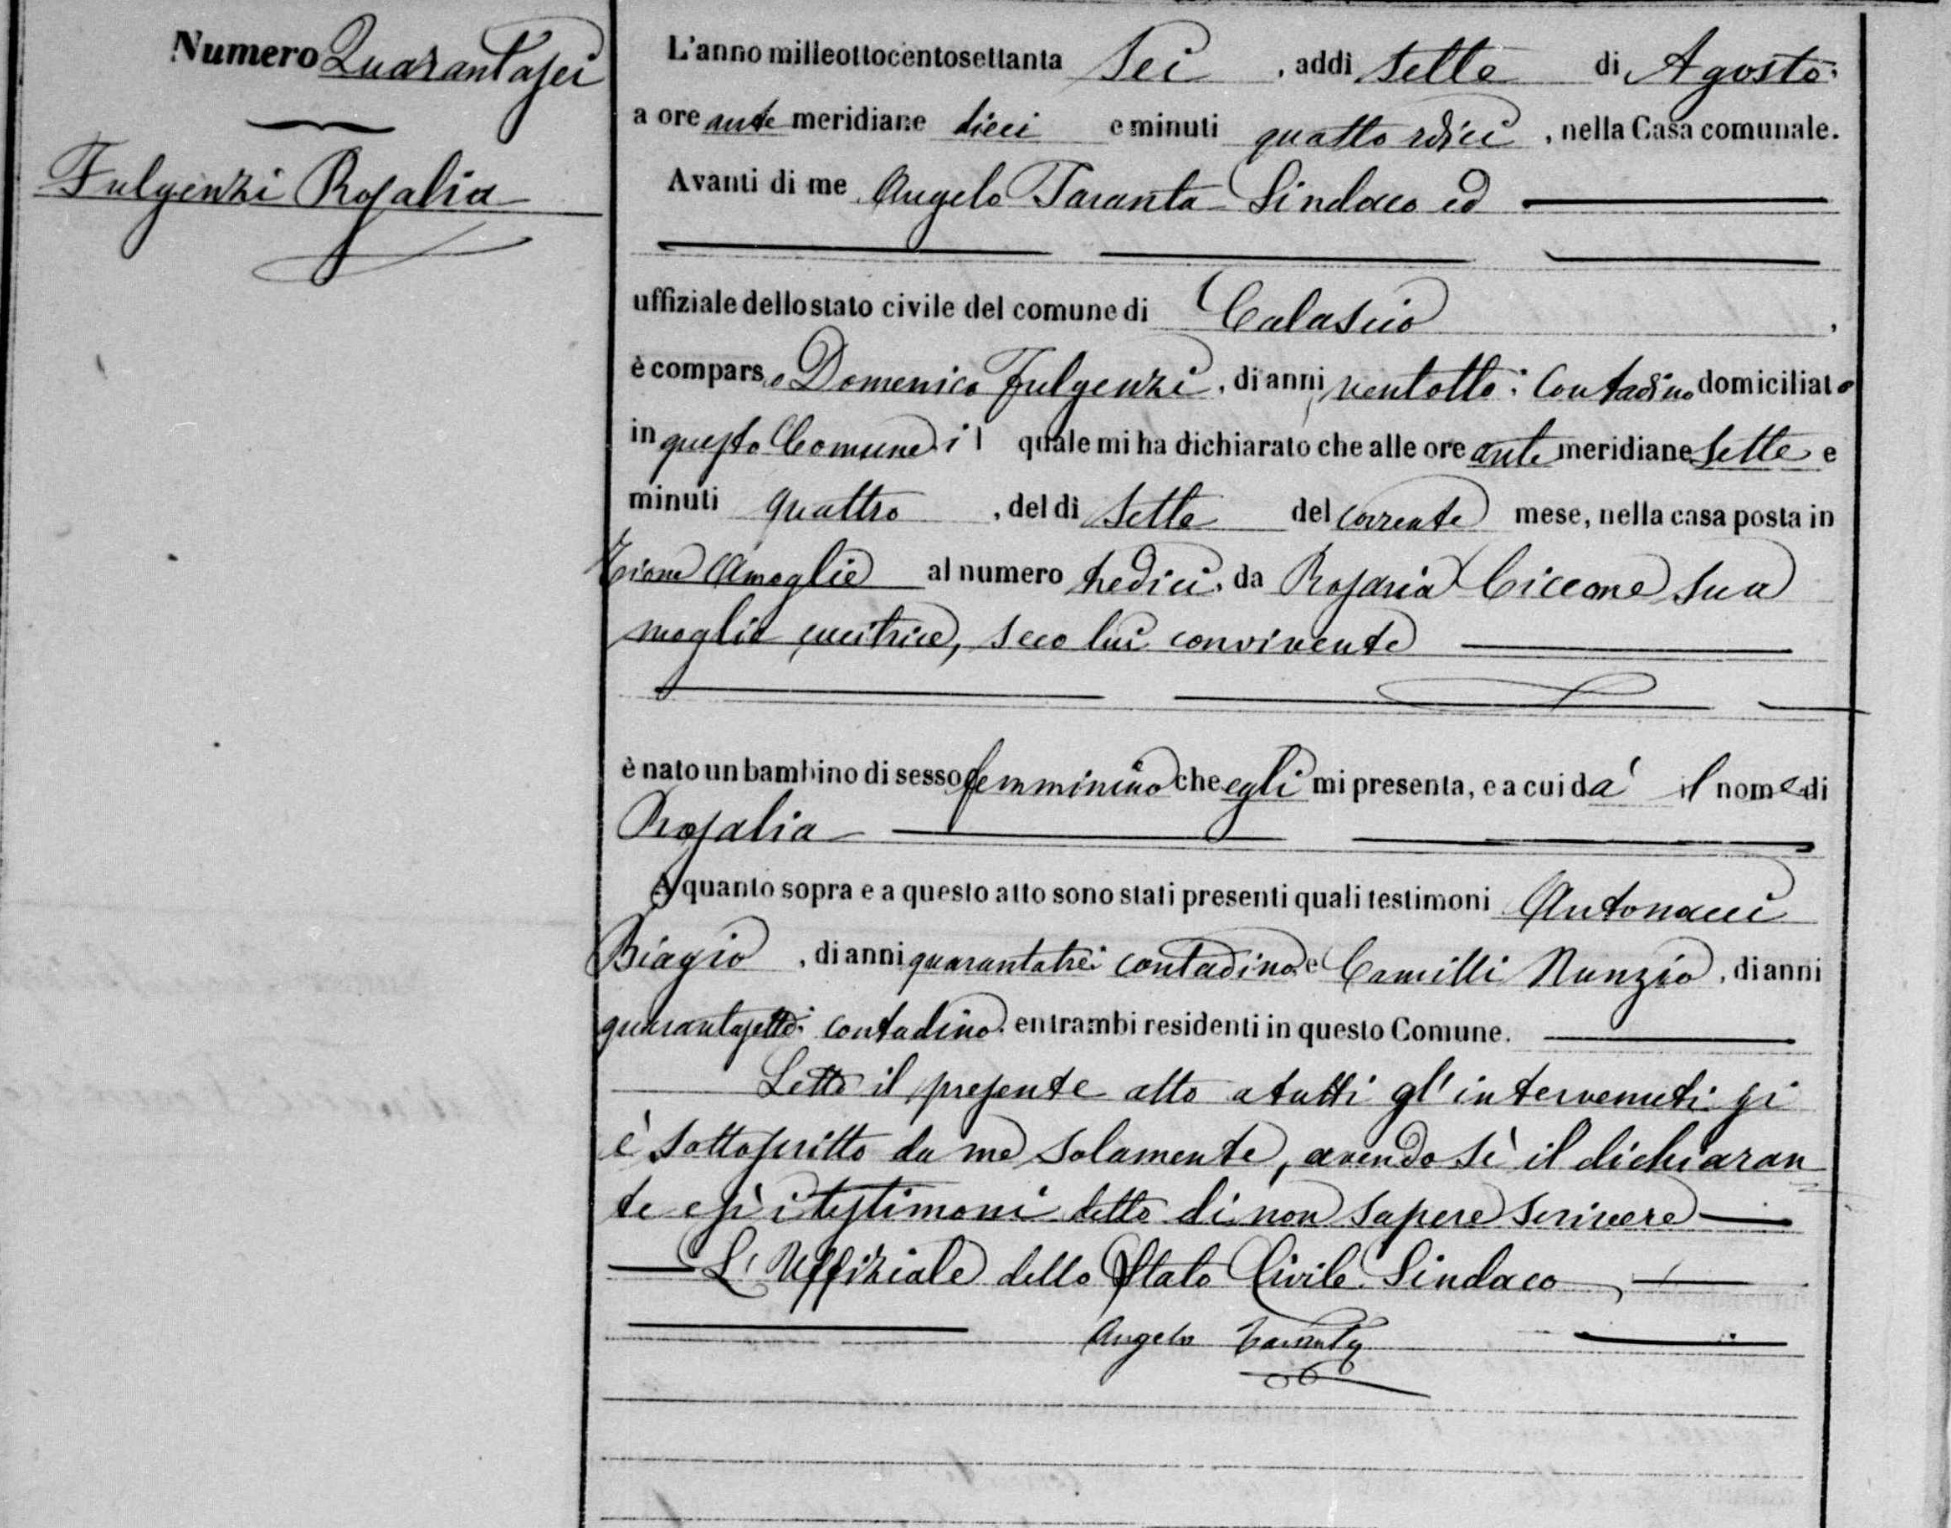 Numero Quarantasei
Fulgenzi Rosalia
L'anno milleottocentosettanta Sei, addì Sette di Agosto,
a ore ante meridiane dieci e minuti quattordici, nella Casa comunale.
Avanti di me Angelo Taranta Sindaco ed
uffiziale dello stato civile del comune di Calascio,
è comparso Domenico Fulgenzi, di anni ventotto, Contadino domiciliato
in questo Comune il quale mi ha dichiarato che alle ore ante meridiane Sette e
minuti quattro, del dì Sette del corrente mese, nella casa posta in
al numero tredici, da Rosaria Ciccone sua
moglie cucitrice, seco lui convivente
è nato un bambino di sesso femminino che egli mi presenta, e a cui dà il nome di
Rosalia
A quanto sopra e a questo atto sono stati presenti quali testimoni Antonacci
Biagio, di anni quarantatrei contadino e Camilli Nunzio, di anni
quarantasette contadino, entrambi residenti in questo Comune.
Letto il presente atto a tutti gl'intervenuti si
è sottoscritto da me solamente, avendo sì il dichiaran
te e sì i testimoni detto di non sapere scrivere
L'Uffiziale dello Stato Civile Sindaco
Angelo Taranta